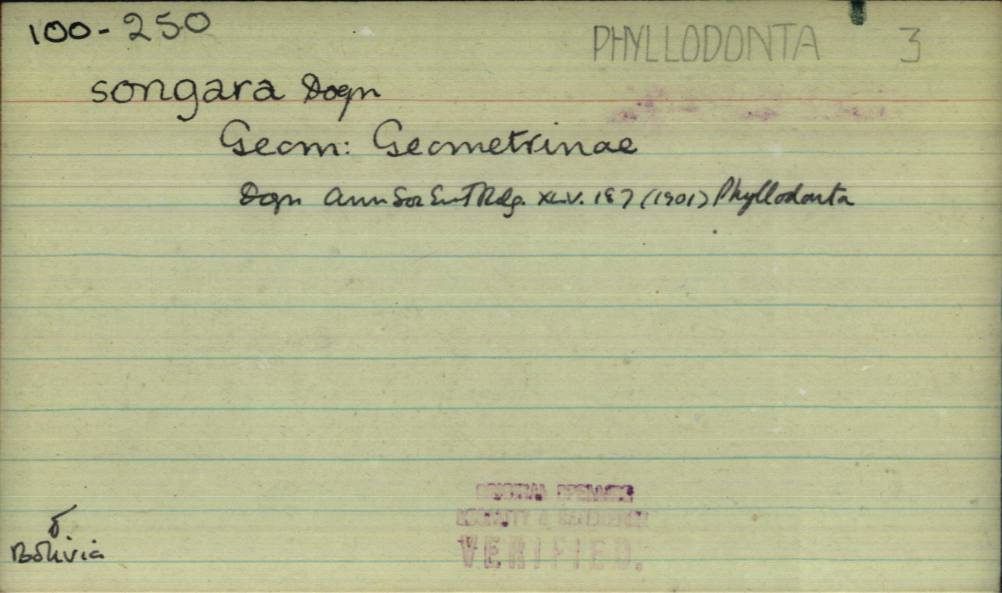 100-250
PHYLLODONTA 3
songara Dogn
Geom: Geometrinae
Dogn Ann Soc Ent Belg. XLV. 187 (1901) Phyllodonta
♂
Bolivia
ORIGINAL SPELLING
LOCALITY & REFERENCE
VERIFIED.